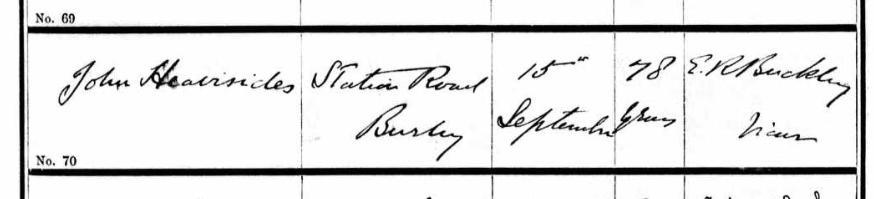 No. 69
John Heavisides Station Road 15th 78 E. R Buckley
Burley September years Vicar
No. 70